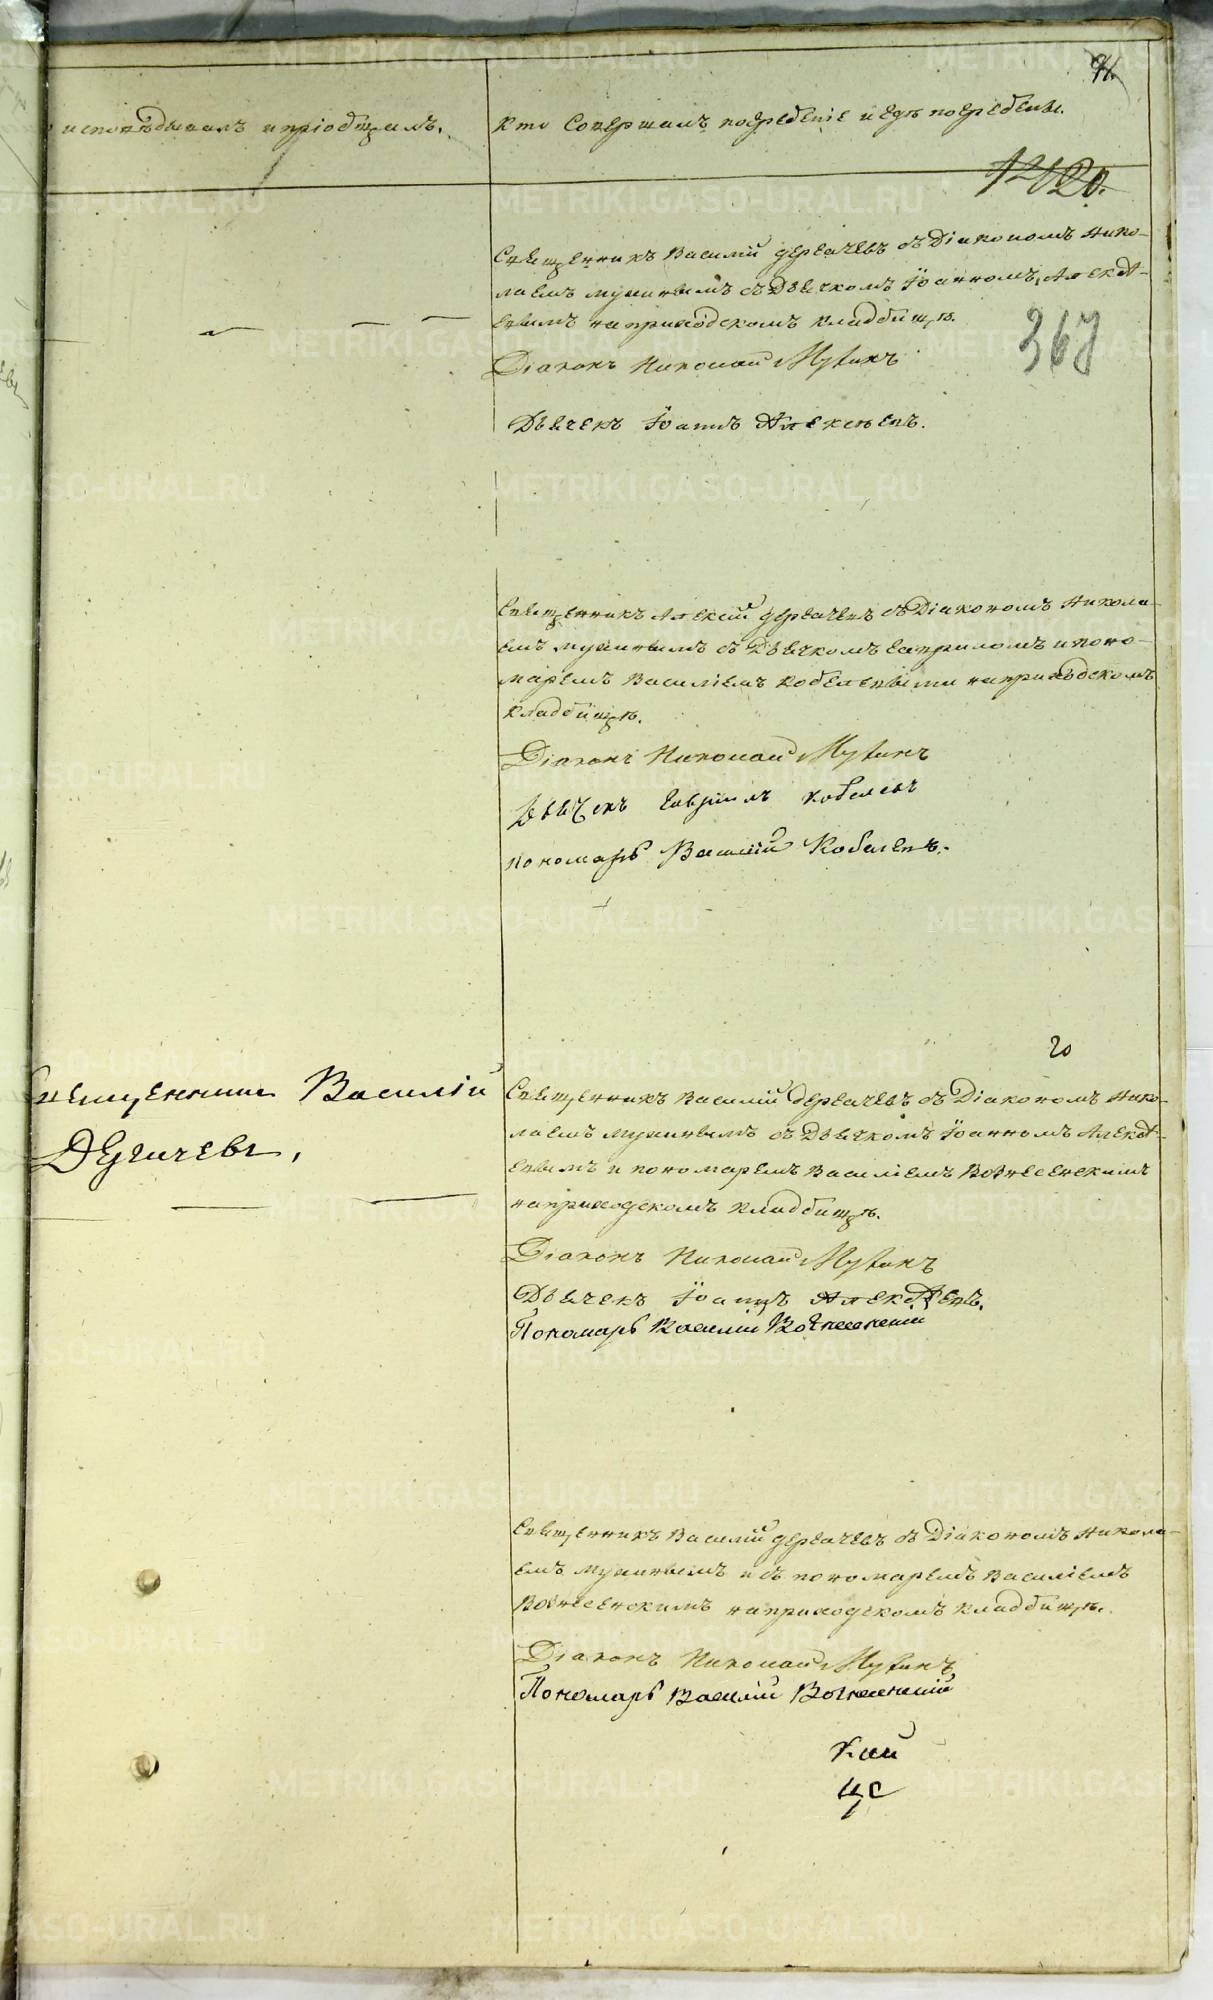 91.
исповѣдывалъ и пріобщалъ.
Кто Совершалъ погребеніе и гдѣ погребены.
367
Священникъ Василій дергачевъ съ Діакономъ Нико-
лаемъ мутинымъ съ Дьячкомъ Іоанномъ Алексѣ-
евымъ на приходскомъ кладбищѣ.
Діаконъ Николай Мутинъ
Дьячекъ Іоаннъ Алексѣевъ.
Священникъ Алексій дергачевъ съ Діакономъ Никола-
емъ мутинымъ съ Дьячкомъ гавриломъ и поно-
маремъ Василіемъ Кобелевыми на приходскомъ
кладбищѣ.
Діаконъ Николай Мутинъ
Дьячекъ гаврилъ кобелевъ
пономарь Василій Кобелевъ.
20
Священникъ Василій
Дергачевъ,
Священникъ Василій дергачевъ съ Діакономъ Нико-
лаемъ мутинымъ съ Дьячкомъ Іоанномъ Алексѣ-
евымъ и пономаремъ Василіемъ Вознесенскимъ
на приходскомъ кладбищѣ.
Діаконъ Николай Мутинъ
Дьячекъ Іоаннъ Алексѣевъ.
Пономарь Василій Вознесенскій
Священникъ Василій дергачевъ съ Діакономъ Никола-
емъ мутинымъ и съ пономаремъ Василіемъ
Вознесенскимъ на приходскомъ кладбищѣ.
Діаконъ Николай Мутинъ
Пономарь Василій Вознесенскій
METRIKI.GASO-URAL.RU